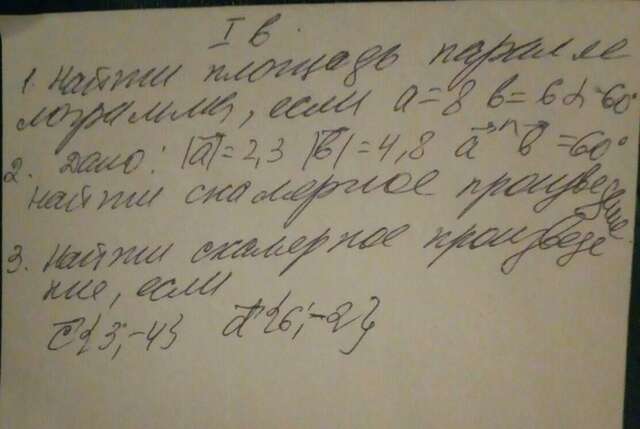 I в.
1. Найти площадь паралле
лограмма, если a=8 b=6 α-60°
2. Дано: |a|=2,3 |b|=4,8 a^b=60°
Найти скалярное произведение
3. Найти скалярное произведе
ние, если
c{3;-4} d{6;-2}